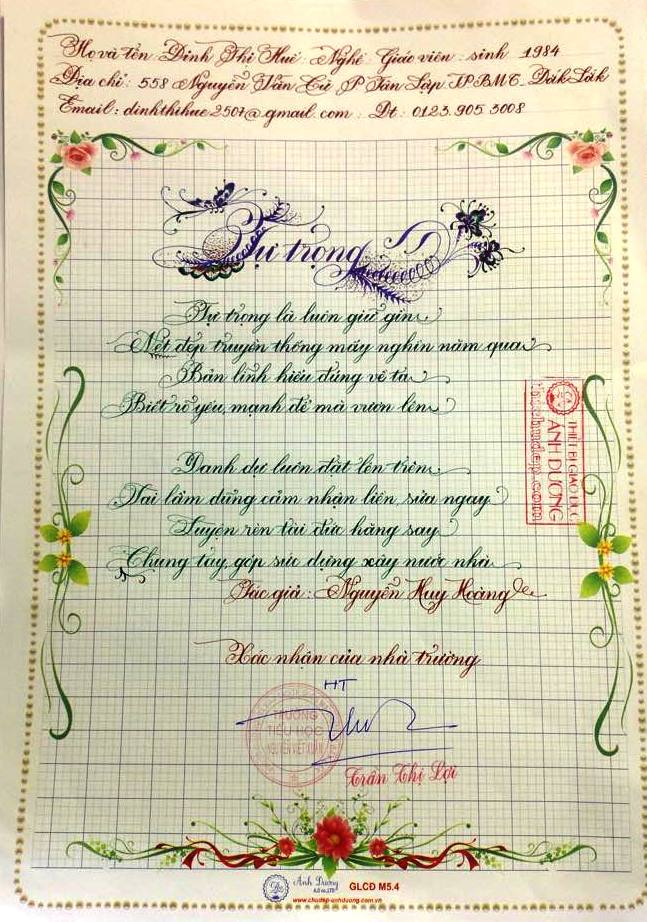 Họ và tên Đinh Thị Huế : Nghề Giáo viên : sinh 1984
Địa chỉ : 558 Nguyễn Văn Cừ P Tân Lập TPBMT. Đắk Lắk
Email : dinhthihue2507@gmail.com : Đt : 0123.905.3008
Tự trọng
Tự trọng là luôn giữ gìn
Nét đẹp truyền thống mấy nghìn năm qua
Bản lĩnh hiểu đúng về ta
Biết rõ yếu, mạnh để mà vươn lên
Danh dự luôn đặt lên trên
Sai lầm dũng cảm nhận liền, sửa ngay
Luyện rèn tài đức hăng say
Chung tay, góp sức dựng xây nước nhà
Tác giả : Nguyễn Huy Hoàng
THIẾT BỊ GIÁO DỤC
ÁNH DƯƠNG
Xác nhận của nhà trường
HT
TRƯỜNG
TIỂU HỌC
Trần Thị Lợi
Ánh Dương
GLCĐ M5.4
www.chudep-anhduong.com.vn